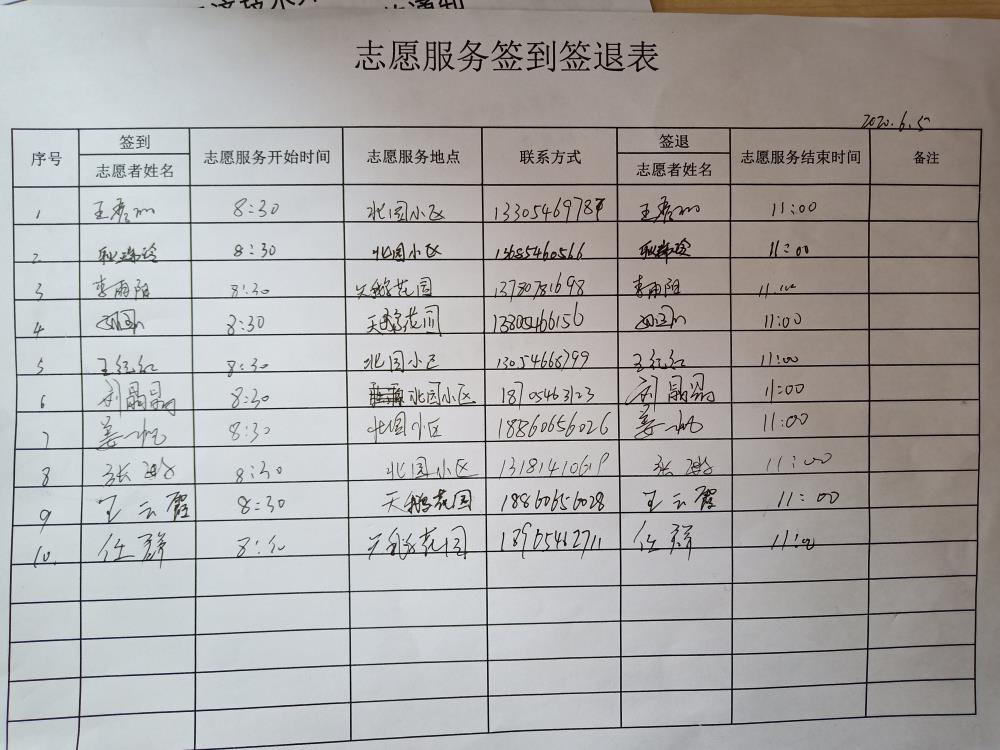 志愿服务签到签退表
2020.6.5
序号 签到 志愿者姓名 志愿服务开始时间 志愿服务地点 联系方式 签退 志愿者姓名 志愿服务结束时间 备注
1 8:30 北国小区 11:00
2 8:30 北国小区 13685460566 11:00
3 李雨阳 8:30 天鹅花园 13780781698 李雨阳 11:00
4 8:30 天鹅花园 13805466156 11:00
5 王纪红 8:30 北国小区 13054668799 王纪红 11:00
6 刘晶晶 8:30 北国小区 18705463123 刘晶晶 11:00
7 姜一帆 8:30 北国小区 18860656026 姜一帆 11:00
8 张 8:30 北国小区 13181410619 张 11:00
9 王云霞 8:30 天鹅花园 18860656028 王云霞 11:00
10. 任群 8:30 天鹅花园 18905462711 任群 11:00